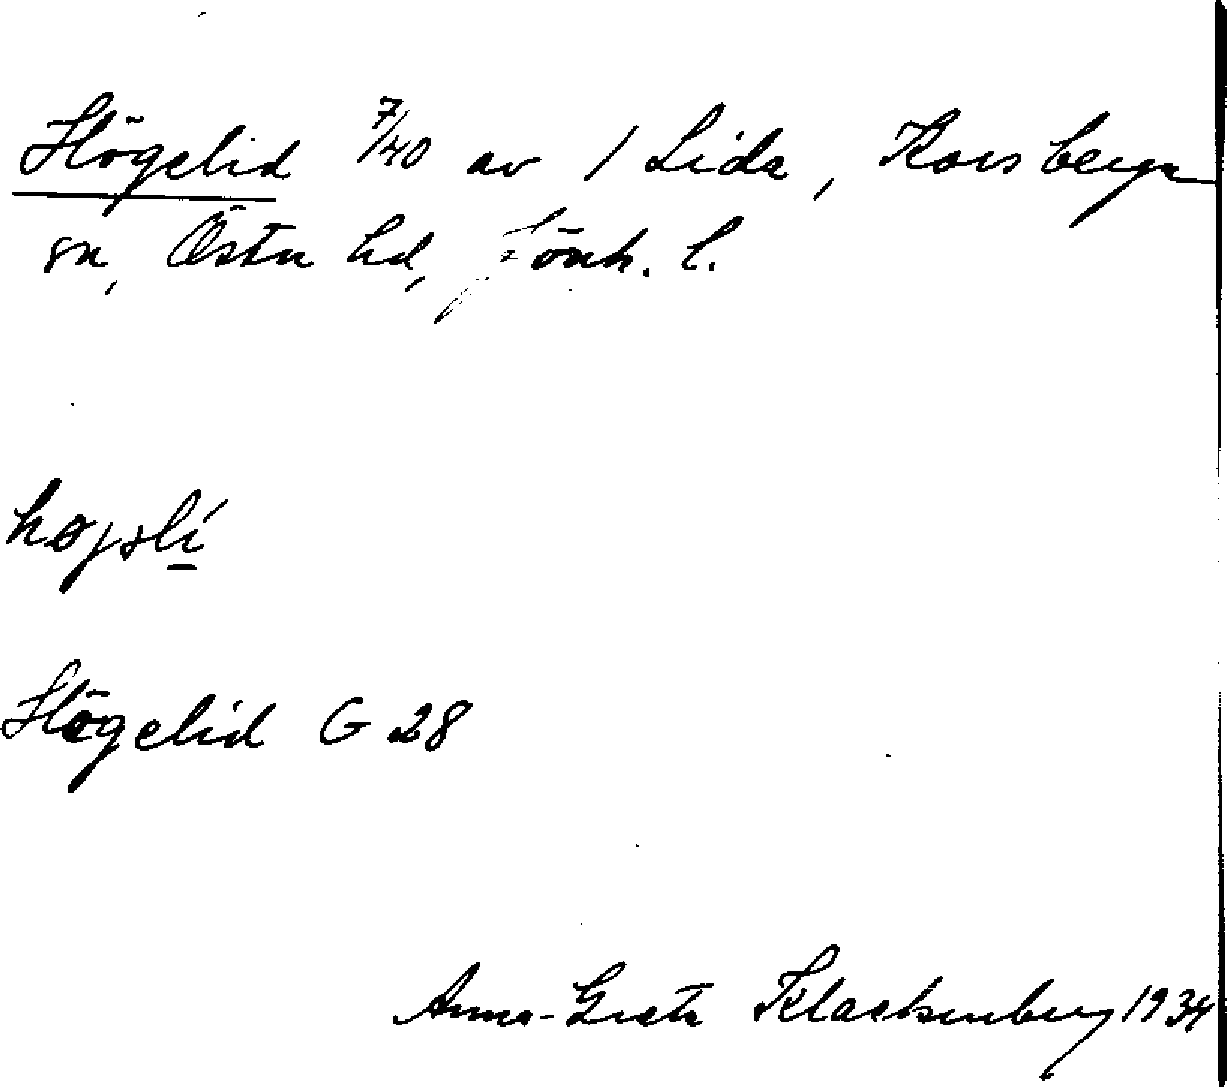 Högelid 7/40 av 1 Lida, Korsberga
sn, Östra hd, Jönk. l.
højslí
Högelid G 28
Anna-Greta Klackenberg 1934